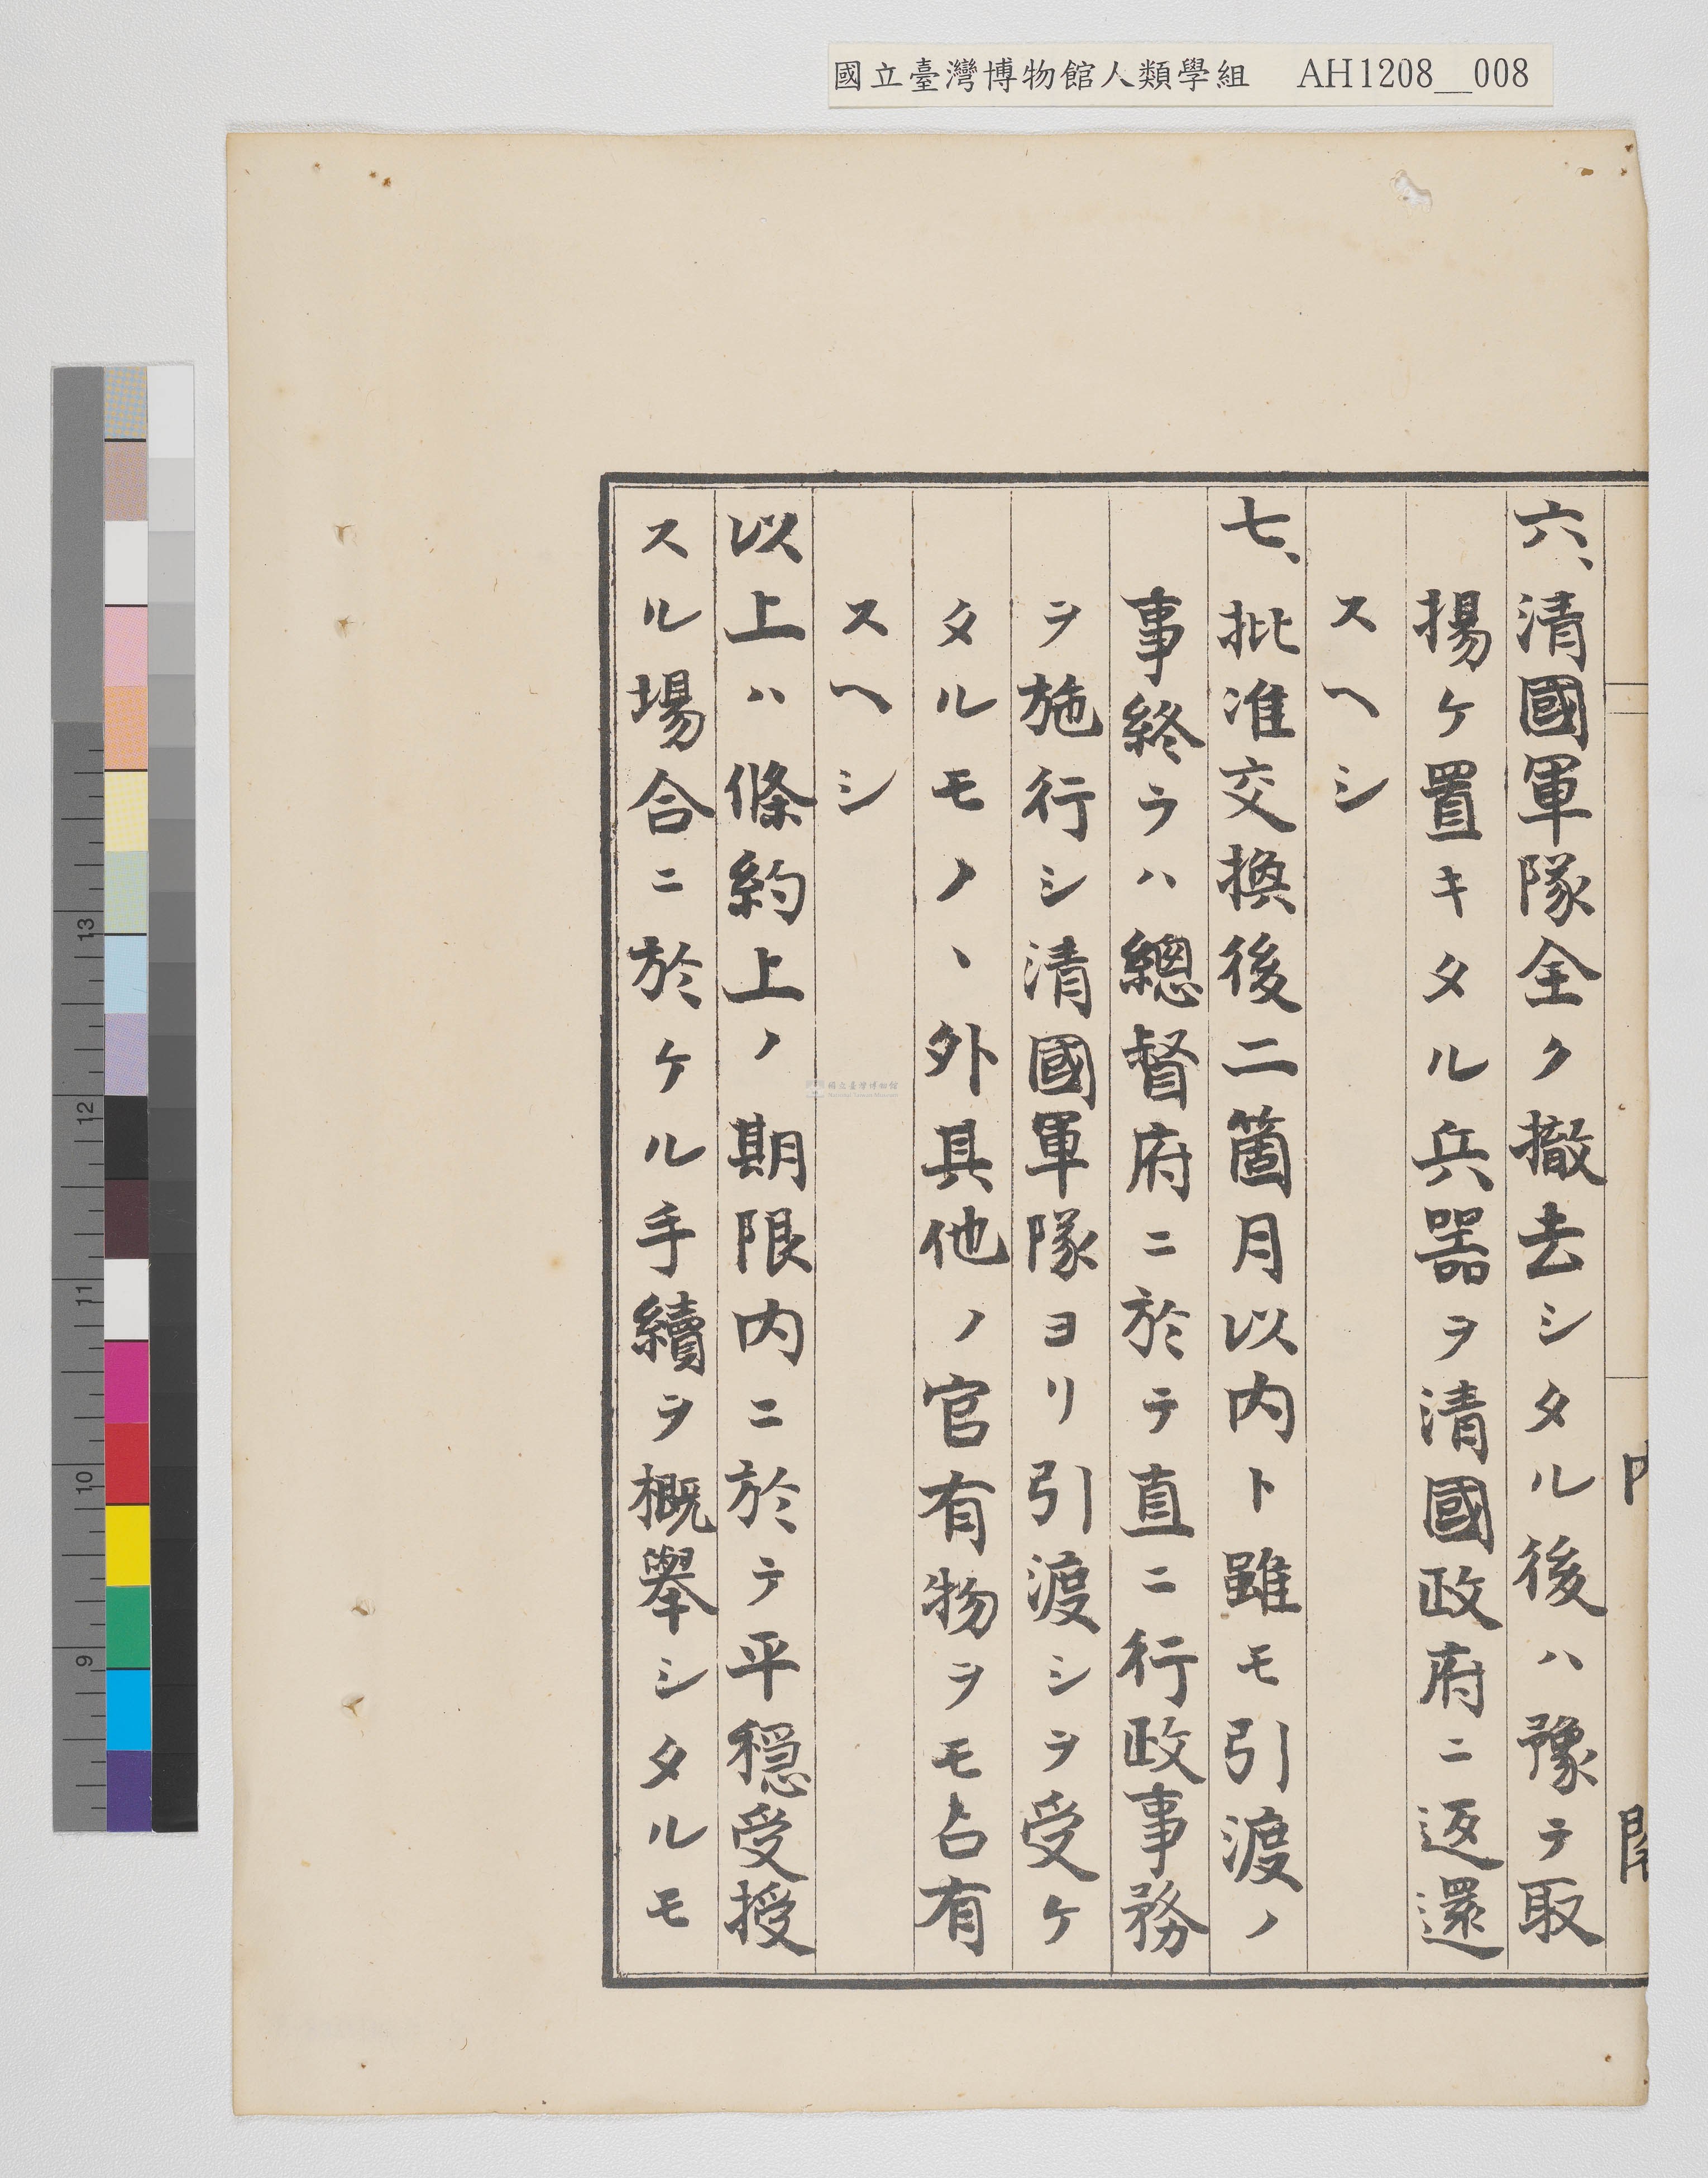 國立臺灣博物館人類學組 AH1208__008
六、清國軍隊全ク撤去シタル後ハ豫テ取
揚ケ置キタル兵器ヲ清國政府ニ返還
スヘシ
七、批准交換後二箇月以内ト雖モ引渡ノ
事終ラハ總督府ニ於テ直ニ行政事務
ヲ施行シ清國軍隊ヨリ引渡シヲ受ケ
タルモノヽ外具他ノ官有物ヲモ占有
スヘシ
以上ハ條約上ノ期限内ニ於テ平穏受授
スル場合ニ於ケル手續ヲ概擧シタルモ
13
12
11
10
9
國立臺灣博物館
National Taiwan Museum